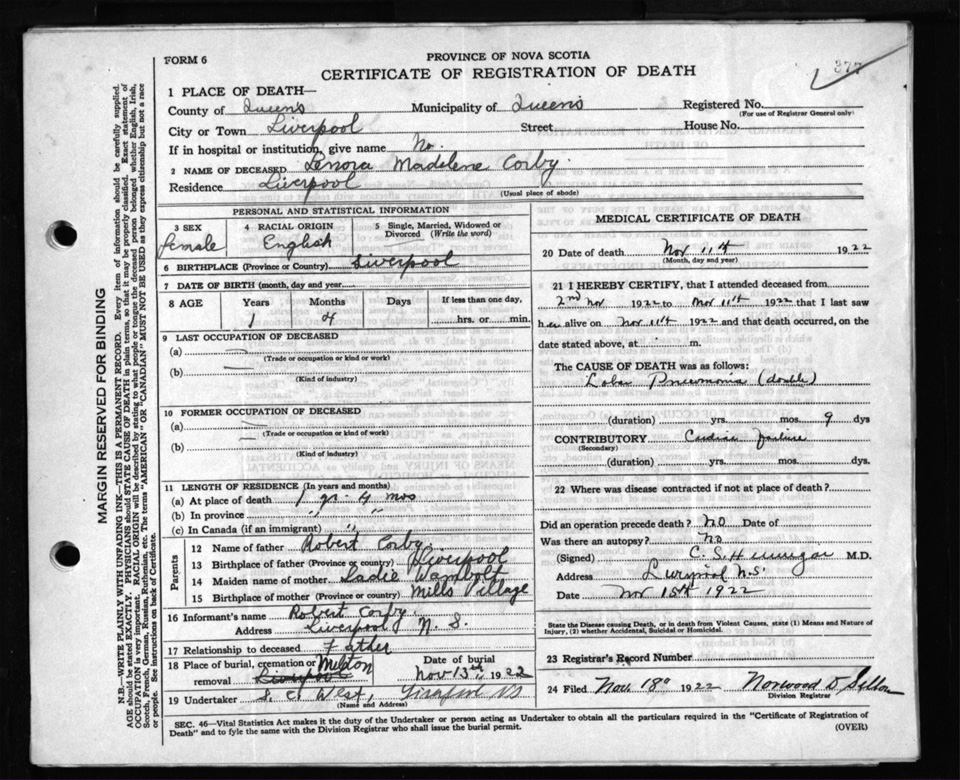 FORM 6
PROVINCE OF NOVA SCOTIA
CERTIFICATE OF REGISTRATION OF DEATH
377
1 PLACE OF DEATH—
County of Queens Municipality of Queens Registered No.
(For use of Registrar General only)
City or Town Liverpool Street House No.
If in hospital or institution, give name No.
2 NAME OF DECEASED Lenora Madelene Corby.
Residence Liverpool
(Usual place of abode)
PERSONAL AND STATISTICAL INFORMATION
3 SEX 4 RACIAL ORIGIN 5 Single, Married, Widowed or Divorced (Write the word)
female English
6 BIRTHPLACE (Province or Country) Liverpool
7 DATE OF BIRTH (month, day and year)
8 AGE Years Months Days If less than one day,
1 4 hrs. or min.
9 LAST OCCUPATION OF DECEASED
(a) —
(Trade or occupation or kind or work)
(b) —
(Kind of industry)
10 FORMER OCCUPATION OF DECEASED
(a) —
(Trade or occupation or kind of work)
(b) —
(Kind of industry)
11 LENGTH OF RESIDENCE (In years and months)
(a) At place of death 1 yr. 4 mos
(b) In province " "
(c) In Canada (if an immigrant) "
Parents
12 Name of father Robert Corby
13 Birthplace of father (Province or country) Liverpool
14 Maiden name of mother Sadie Wambolt
15 Birthplace of mother (Province or country) Mills Village
16 Informant's name Robert Corby.
Address Liverpool N. S.
17 Relationship to deceased Father
18 Place of burial, cremation or removal Liverpool Milton
Date of burial Nov 13th 1922
19 Undertaker West, Liverpool NS
(Name and Address)
MEDICAL CERTIFICATE OF DEATH
20 Date of death Nov 11th 1922
(Month, day and year)
21 I HEREBY CERTIFY, that I attended deceased from
2nd Nov 1922 to Nov 11th 1922 that I last saw
her alive on Nov 11th 1922 and that death occurred, on the
date stated above, at m.
The CAUSE OF DEATH was as follows:
Lobar Pneumonia (double)
(duration) yrs. mos. 9 dys
CONTRIBUTORY Cardiac Failure
(Secondary)
(duration) yrs. mos. dys.
22 Where was disease contracted if not at place of death?
Did an operation precede death? NO Date of
Was there an autopsy? No
(Signed) C. S. M.D.
Address Liverpool N.S.
Date Nov 15th 1922
State the Disease causing Death, or in death from Violent Causes, state (1) Means and Nature of
Injury, (2) whether Accidental, Suicidal or Homicidal.
23 Registrar's Record Number
24 Filed Nov. 18th 1922 Norwood D
Division Registrar
SEC. 46—Vital Statistics Act makes it the duty of the Undertaker or person acting as Undertaker to obtain all the particulars required in the "Certificate of Registration of
Death" and to fyle the same with the Division Registrar who shall issue the burial permit.
(OVER)
MARGIN RESERVED FOR BINDING
N.B.—WRITE PLAINLY WITH UNFADING INK—THIS IS A PERMANENT RECORD. Every item of information should be carefully supplied.
AGE should be stated EXACTLY. PHYSICIANS should STATE CAUSE OF DEATH in plain terms, so that it may be properly classified. Exact statement of
OCCUPATION is very important. RACIAL ORIGIN will be described by stating to what people or tongue the deceased person belonged whether English, Irish,
Scotch, French, German, Russian, Ruthenian, etc. The terms "AMERICAN" OR "CANADIAN" MUST NOT BE USED as they express citizenship but not a race
or people. See instructions on back of Certificate.